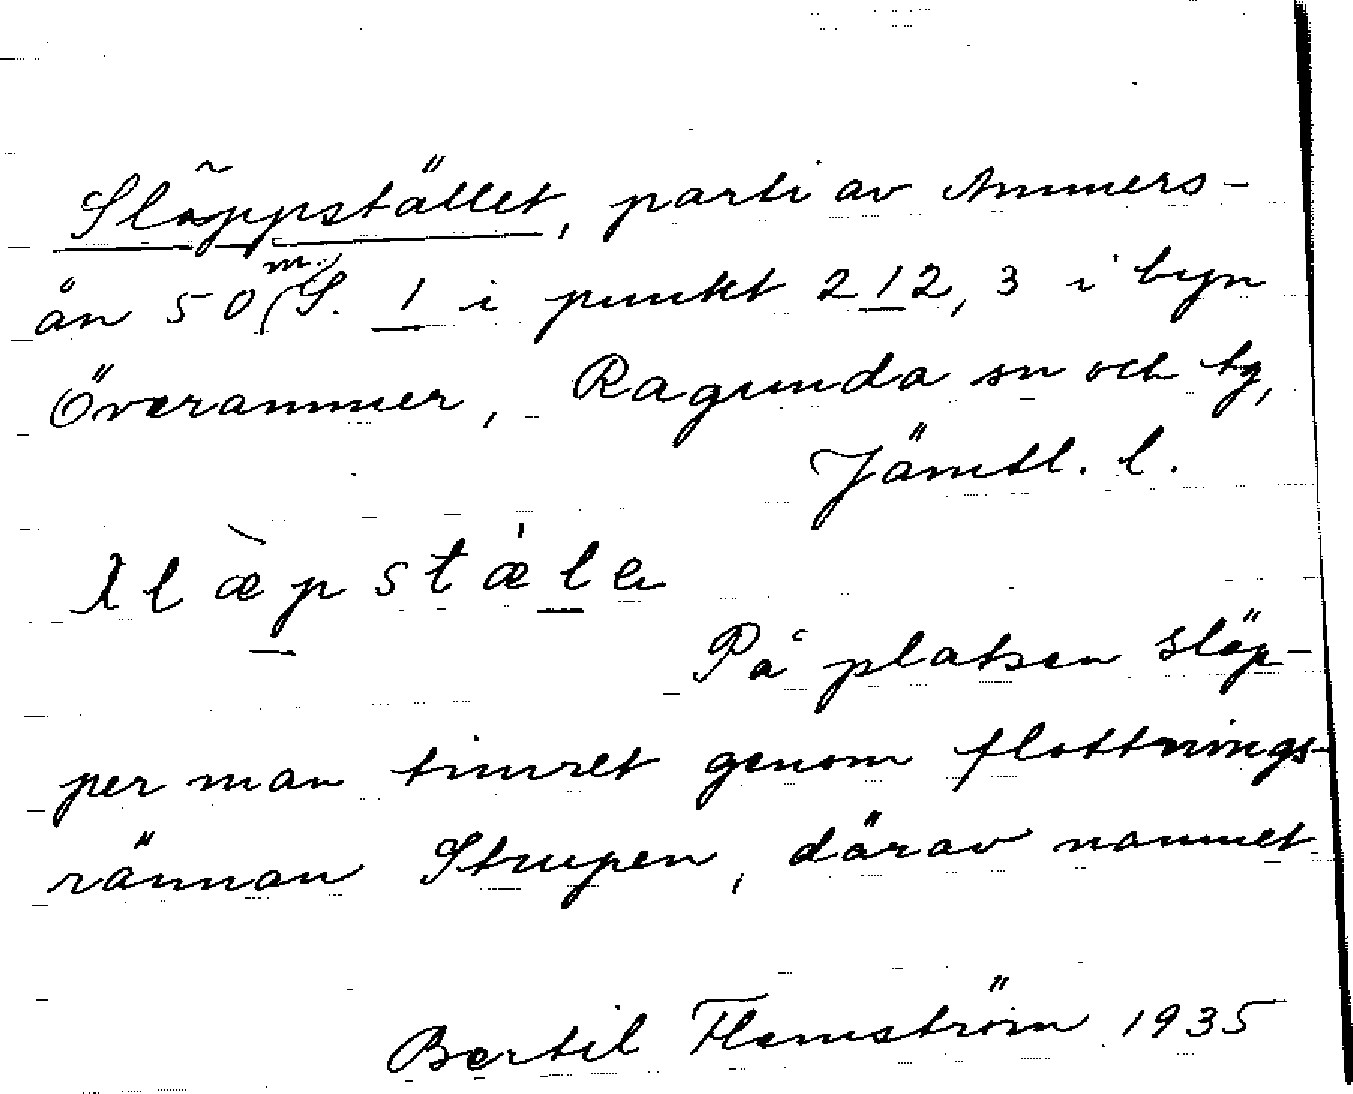 Släppstället, parti av Ammers-
ån 50 m. S. 1 i punkt 212, 3 i byn
Överammer, Ragunda sn och tg,
Jämtl. l.
æpstæla
På platsen släp-
per man timret genom flottnings-
rännan Strupen, därav namnet
Bertil Flemström 1935